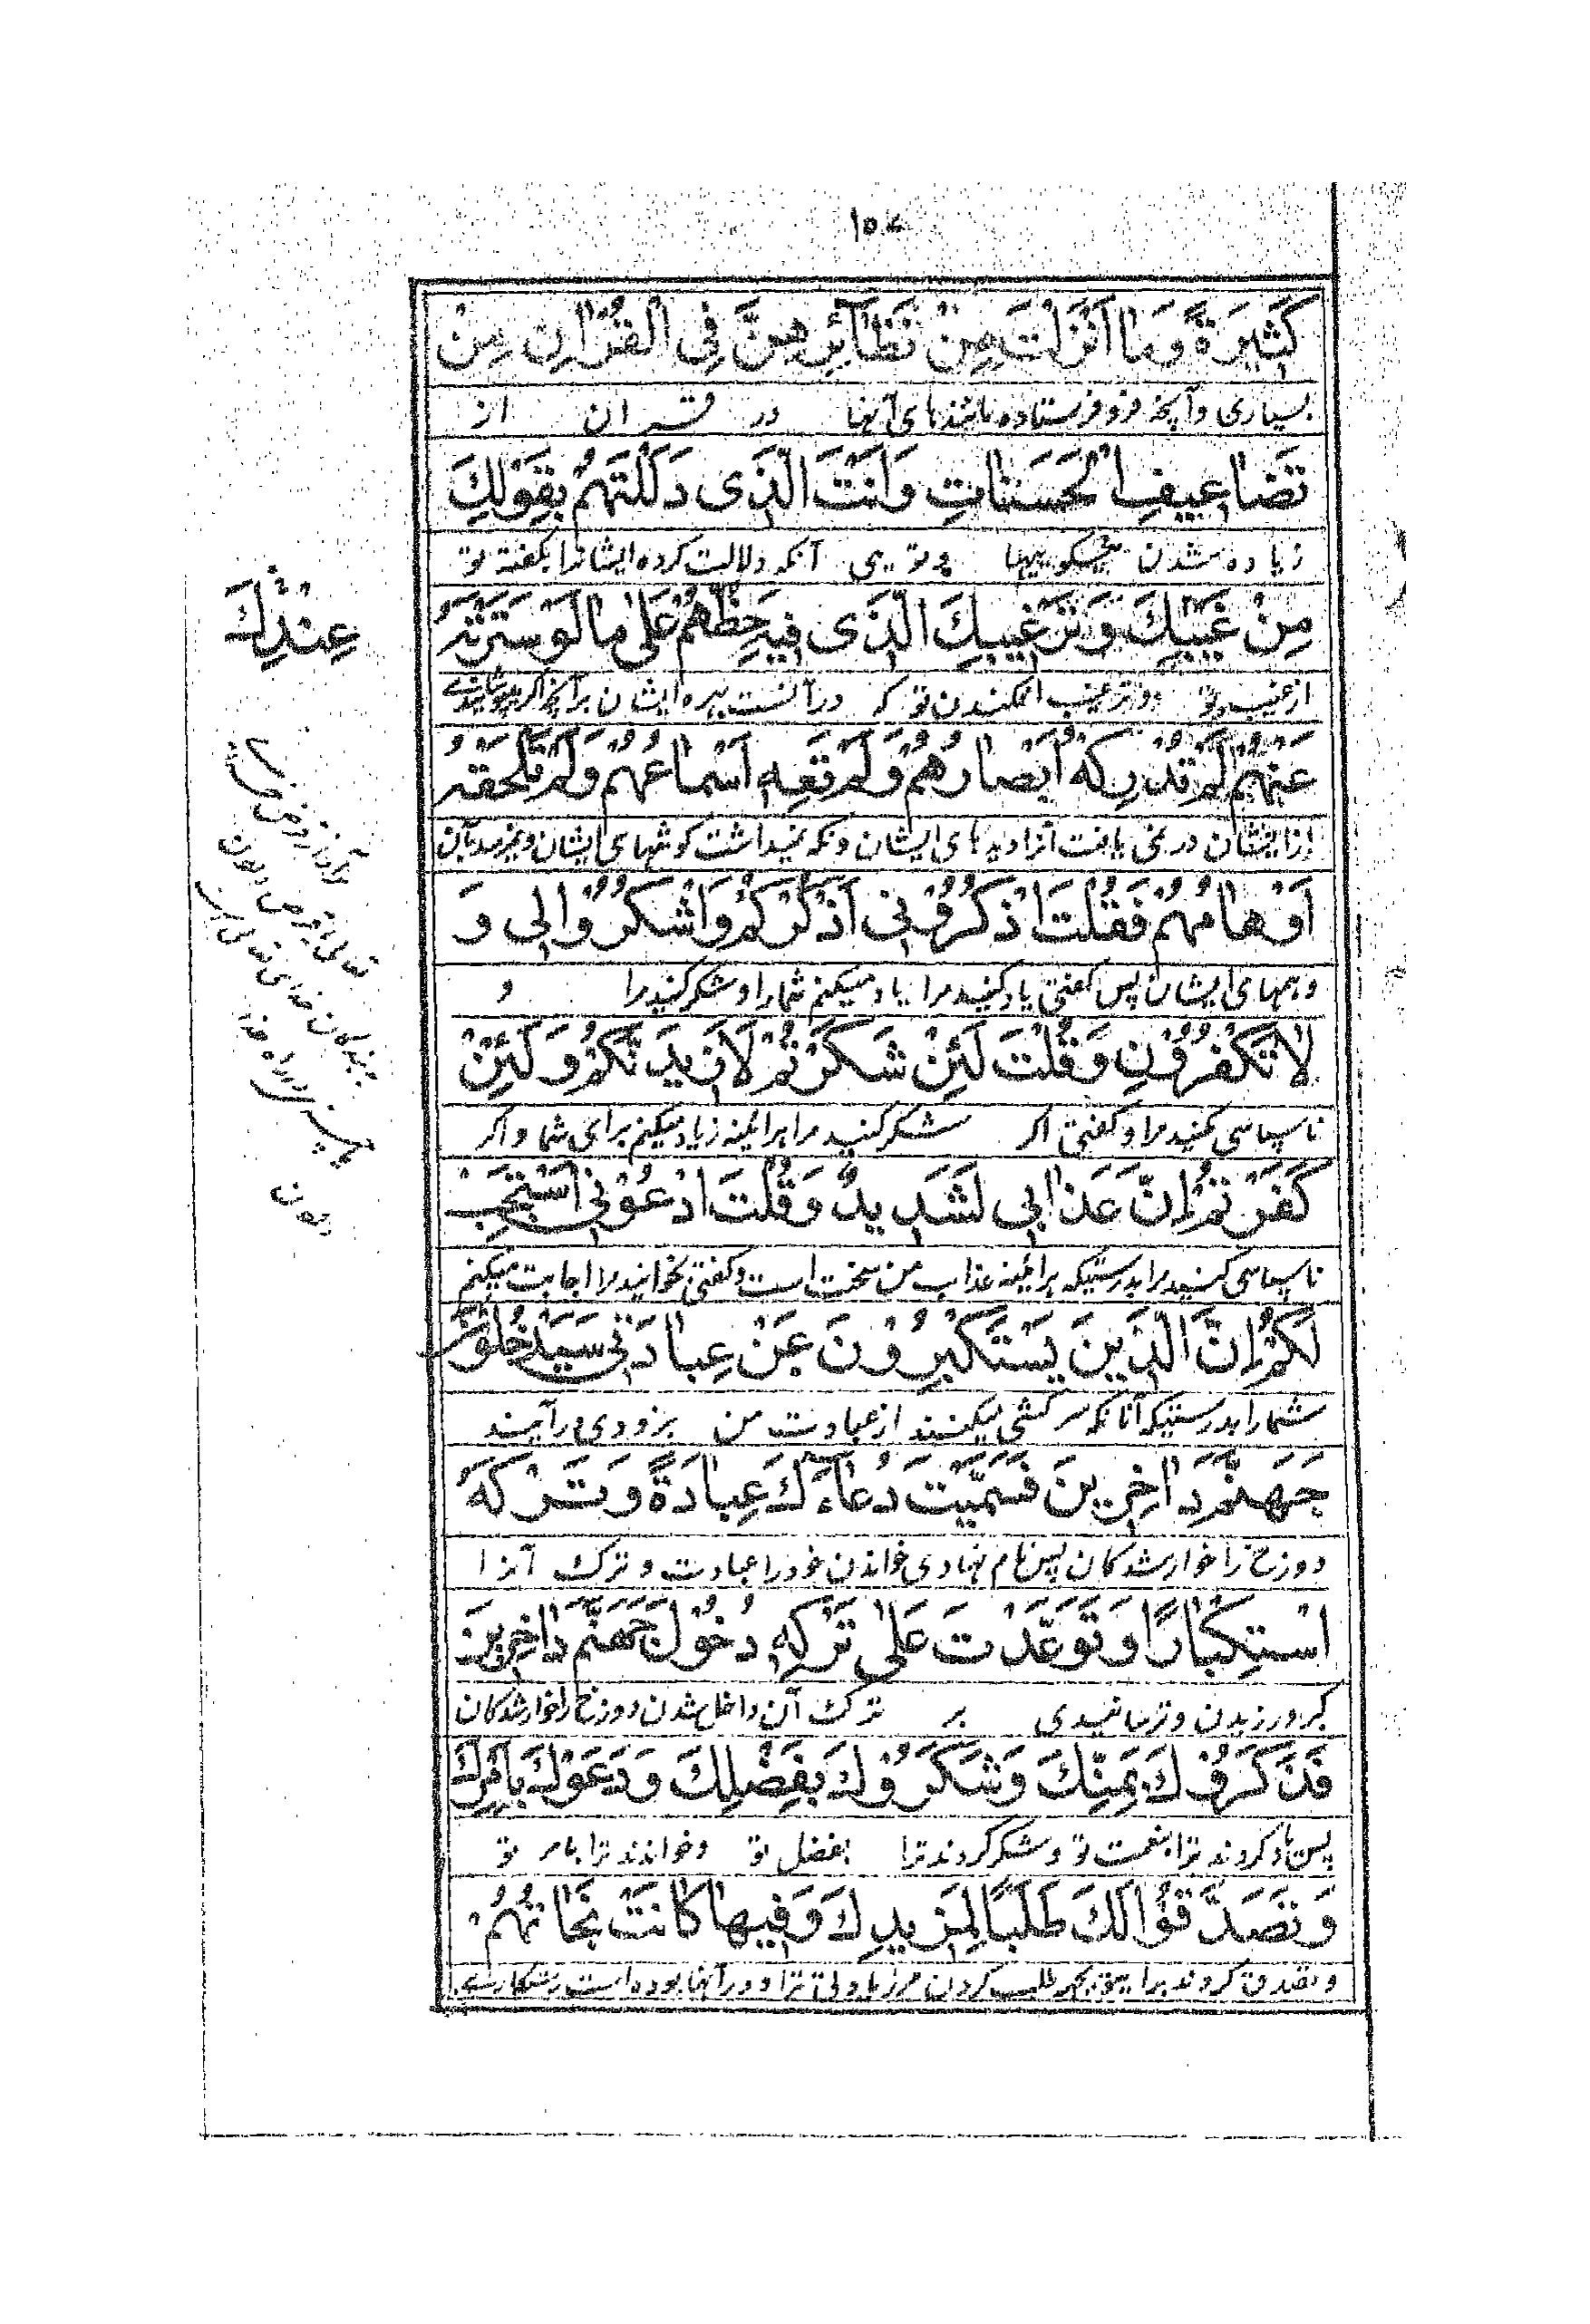 كَثِيرَةً وَمَا اَنْزَلْتَ مِنْ نَظَآئِرِهِنَّ فِى الْقُرْاٰنِ مِنْ
بسیاری وآنچه فرو فرستاده مانندهای آنها در قران از
تَضَاعِيفِ الْحَسَنَاتِ وَاَنْتَ الَّذِى دَلَلْتَهُمْ بِقَوْلِكَ
زیاده شدن نیکوییها و تویی آنکه دلالت کرده ایشانرا بگفته تو
مِنْ غَيْبِكَ وَتَرْغِيبِكَ الَّذِى فِيهِ حَظُّهُمْ عَلٰى مَا لَوْ سَتَرْتَهُ
از غیب تو و ترغیب افکندن تو که در آنست بهره ایشان برآنچه اگر
عَنْهُمْ لَمْ تُدْرِكْهُ اَبْصَارُهُمْ وَلَمْ تَعِهِ اَسْمَاعُهُمْ وَلَمْ تَلْحَقْهُ
از ایشان در نمی یافت آنرا دیدهای ایشان و نگه نمیداشت گوشهای ایشان و نمیرسید بآن
اَوْهَامُهُمْ فَقُلْتَ اذْكُرُونِى اَذْكُرْكُمْ وَاشْكُرُوا لِى وَ
وهمهای ایشان پس گفتی یاد کنید مرا یاد میکنم شما را و شکر کنید مرا و
لَا تَكْفُرُونِ وَقُلْتَ لَئِنْ شَكَرْتُمْ لَاَزِيدَنَّكُمْ وَلَئِنْ
ناسپاسی نکنید مرا و گفتی اگر شکر کنید مرا هرآئینه زیاد میکنم برای شما و اگر
كَفَرْتُمْ اِنَّ عَذَابِى لَشَدِيدٌ وَقُلْتَ ادْعُوْنِى اَسْتَجِبْ
ناسپاسی کنید مرا بدرستیکه هرآئینه عذاب من سخت است و گفتی بخوانید مرا اجابت میکنم
لَكُمْ اِنَّ الَّذِينَ يَسْتَكْبِرُوْنَ عَنْ عِبَادَتِى سَيَدْخُلُوْنَ
شما را بدرستیکه آنانکه سرکشی میکنند از عبادت من بزودی در آیند
جَهَنَّمَ دَاخِرِينَ فَسَمَّيْتَ دُعَآءَكَ عِبَادَةً وَتَرْكَهُ
دوزخ را خوار شدگان پس نام نهادی خواندن خود را عبادت و ترک آنرا
اسْتِكْبَارًا وَتَوَعَّدْتَ عَلٰى تَرْكِهِ دُخُوْلَ جَهَنَّمَ دَاخِرِينَ
کبر ورزیدن و ترسانیدی بر ترک آن داخل شدن دوزخ را خوار شدگان
فَذَكَرُوْكَ بِمَنِّكَ وَشَكَرُوْكَ بِفَضْلِكَ وَدَعَوْكَ بِاَمْرِكَ
پس یاد کردند ترا بنعمت تو و شکر کردند ترا بفضل تو و خواندند ترا بامر تو
وَتَصَدَّقُوْا لَكَ طَلَبًا لِمَزِيدِكَ وَفِيهَا كَانَتْ نَجَاتُهُمْ
و تصدق کردند برای تو بجهة طلب کردن مر زیادتی ترا و در آنها بوده است رستگاری
عِنْدِكَ